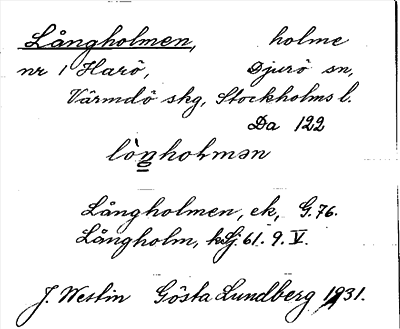 Långholmen, holme
nr 1 Harö, Djurö sn,
Värmdö skg, Stockholms l.
Da 122
lòŋholmən
Långholmen, ek, G. 76.
Långholm, kSj. 61. 9. V.
J. Westin Gösta Lundberg 1931.